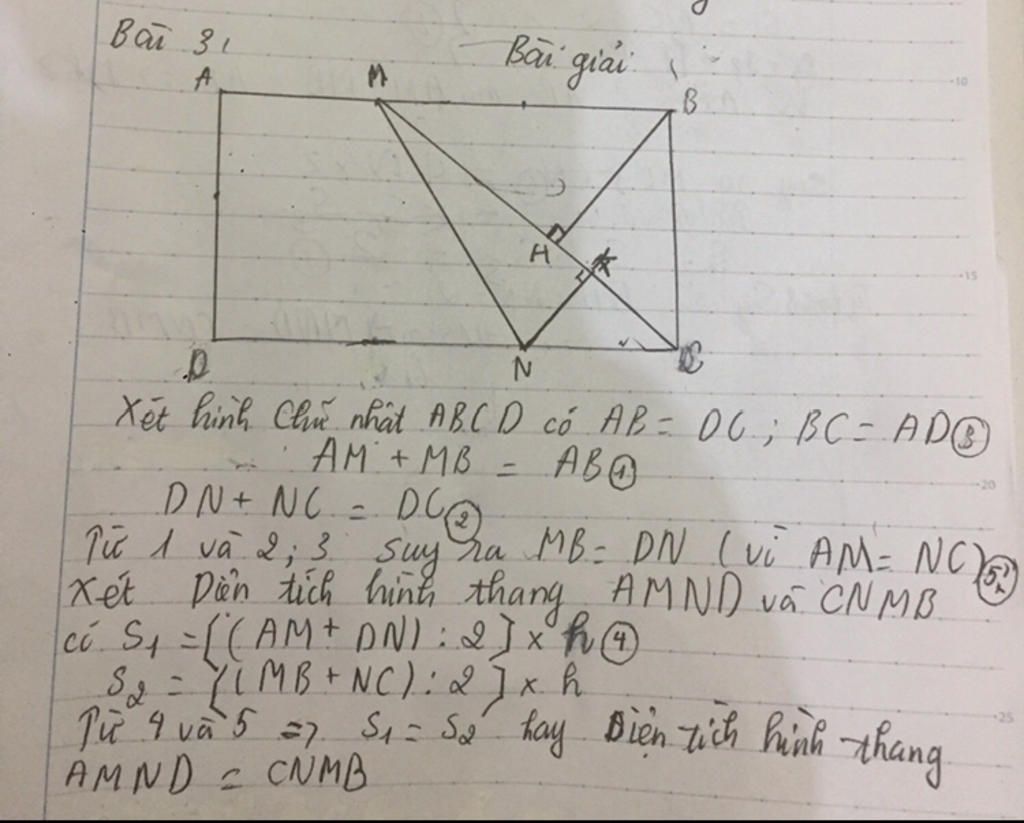 Bài 3,
Bài giải
A M B
H K
D N C
Xét hình Chữ nhật ABCD có AB = DC ; BC = AD ③
AM + MB = AB ①
DN + NC = DC ②
Từ 1 và 2 ; 3 suy ra MB = DN (vì AM = NC) ⑤
Xét Diện tích hình thang AMND và CNMB
có S1 = [(AM + DN) : 2] x h ④
S2 = [(MB + NC) : 2] x h
Từ 4 và 5 => S1 = S2 hay Diện tích hình thang
AMND = CNMB